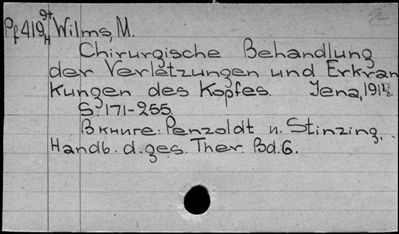 Pf419 Wilms, M.
Chirurgische Behandlung
der Verletzungen und Erkran
kungen des Kopfes. Jena, 1914
S. 171-255.
В книге: Penzoldt u. Stinzing.
Handb. d. ges. Ther. Bd. 6.